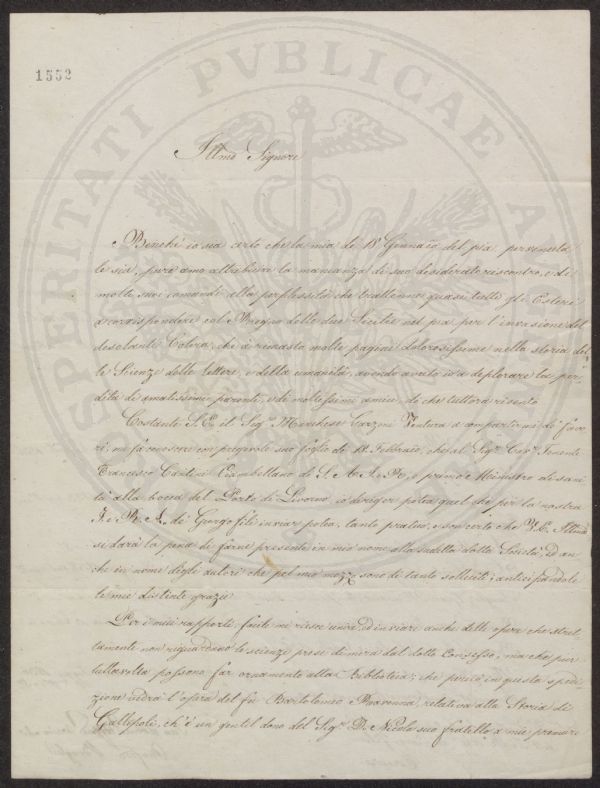 1552
PROSPERITATI PVBLICAE AVGENDAE
Illmo Signore
Benché io sia certo che la mia de 18 Gennaio del p:p:a pervenuta
le sia, pure amo attribuire la mancanza di suo desiderato riscontro, e di
molti suoi comandi alla perplessità che trattenne quasi tutti gli Esteri
a corrispondere col Regno delle due Sicilie nel p:p:a per l'invasione del
desolante Colera, che à rimasto molte pagine dolorosissime nella storia del
le Scienze delle Lettere, e della umanità, avendo avuto io a deplorare la per
dita di amatissimi parenti, e di moltissimi amici, di che tuttora risento
Costante S. E. il Sig.r Marchese Cav. Ventura a compartirmi di favo
ri, mi fà conoscere con pregevole suo foglio de 12 Febbraio, che al Sig.r Cav.r Tenente
Francesco Castini Ciambellano di S. A. I. e R., e primo Ministro di sani
tà alla bocca del Porto di Livorno io diriger potea quel che per la nostra
I. e R. A. de' Georgofili inviar potea, tanto pratico, e son certo che V. S. Illma
si darà la pena di farne presente in mio nome alla sudetta dotta Società, ed an
che in nome degli autori che pel mio mezzo sono di tanto solleciti; anticipandole
le mie distinte grazie
Per i miei rapporti facile mi riesce unire, ed inviare anche delle opere che stret
tamente non riguardino le scienze prese di mira dal dotto Consesso, ma che pur
tuttavolta possono far ornamento alla Biblioteca; che perciò in questa spedi
zione vedrà l'opera del fu Bartolomeo Ravenna, relativa alla Storia di
Gallipoli, ch'è un gentil dono del Sig.r D. Nicola suo fratello a mie premure